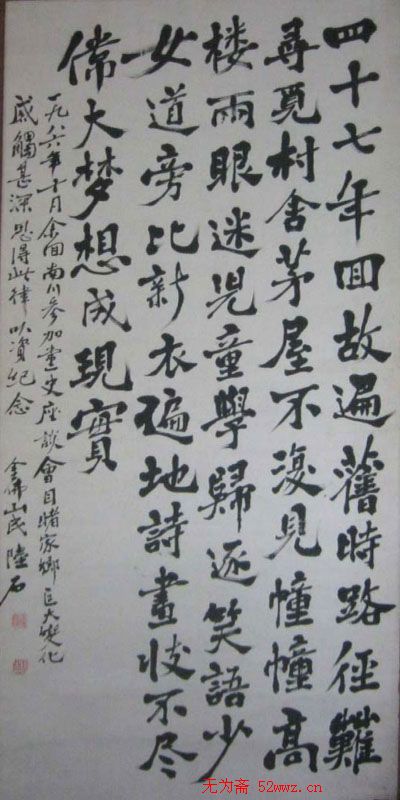 四十七年回故遍舊時路径難
尋覓村舍茅屋不復見幢幢高
楼兩眼迷児童學歸逐笑語少
女道旁比新衣遍地詩畫收不尽
偉大梦想成現實
一九八六年十月余回南川参加史座談會目睹家鄉巨大变化
感觸甚深得此律以資紀念 金佛山民陸石
无为斋 52wwz.cn